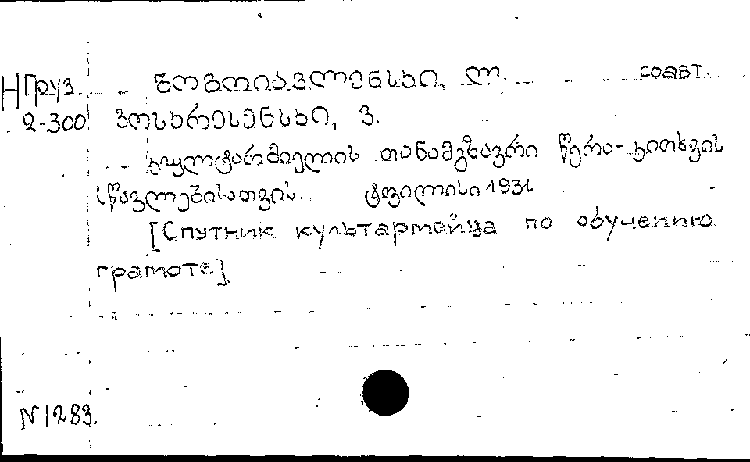 НГруз ბოგოიავლენსკი, ლ. соавт.
2-300 ვოსკრესენსკი, ვ.
კულტარმიელის თანამგზავრი წერა-კითხვის
სწავლებისათვის. ტფილისი 1931
[Спутник культармейца по обучению
грамоте]
N1283.